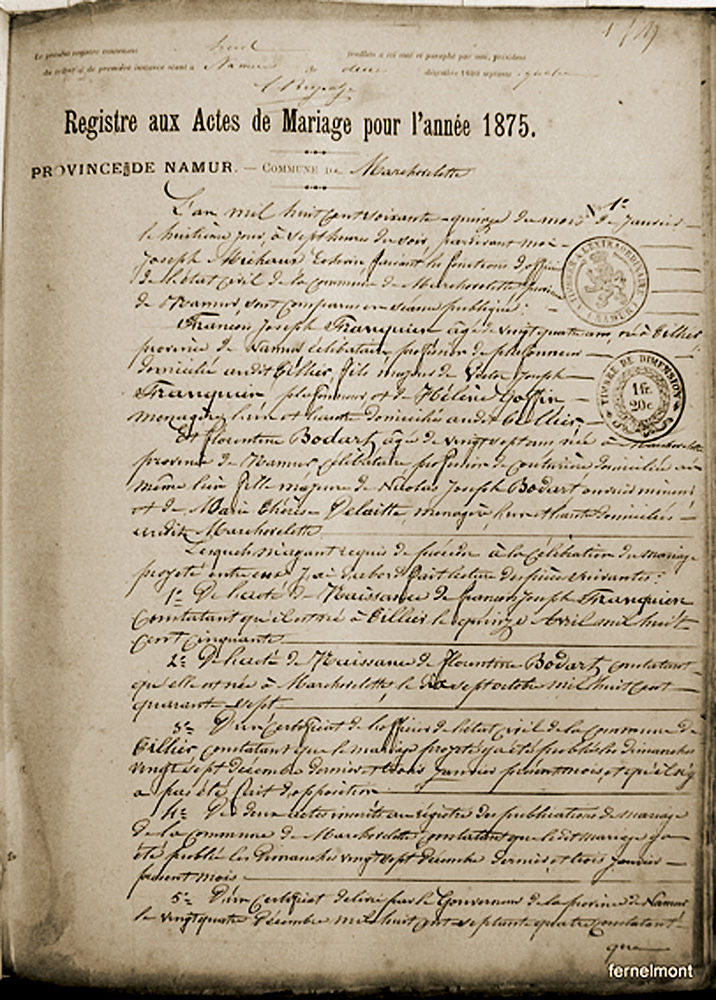 Le présent registre contenant huit feuillets a été coté et paraphé par nous, président
du tribunal de première instance séant à Namur le deux décembre 1800 septante quatre
Registre aux Actes de Mariage pour l'année 1875.
PROVINCE DE NAMUR. — COMMUNE DE Marchovelette
N° 1er
L'an mil huit cent soixante-quinze du mois de Janvier
le huitième jour, à sept heures du soir, pardevant moi
Joseph Michaux Echevin faisant les fonctions d'officier
de l'état civil de la commune de Marchovelette province
de Namur, sont comparus en séance publique:
TIMBRE A L'EXTRAORDINAIRE
NAMUR
François Joseph Franquien âgé de vingt quatre ans, né à Tillier
province de Namur célibataire profession de plafonneur
domicilié audit Tillier, fils majeur de Victor Joseph
TIMBRE DE DIMENSION
1 fr.
20c
Franquien plafonneur et de Hélène Goffin
ménagère lui et elle domiciliés audit Tillier,
Et Florentine Bodart, âgé de vingt sept ans née à Marchovelette
province de Namur, célibataire profession de couturière domiciliée au
même lieu fille majeure de Nicolas Joseph Bodart ouvrier mineur
et de Marie Thérèse Delaitte, ménagère, domiciliés
audit Marchovelette.
Lesquels m'ayant requis de procéder à la célébration du mariage
projeté entre eux, j'ai d'abord fait lecture des pièces suivantes:
1° De l'acte de Naissance de François Joseph Franquien
constatant qu'il est né à Tillier le quinze Avril mil huit
cent cinquante
2° De l'acte de Naissance de Florentine Bodart, constatant
qu'elle est née à Marchovelette le sept octobre mil huit cent
quarante sept
3° D'un certificat de l'officier de l'état civil de la commune de
Tillier constatant que le mariage projeté y a été publié les dimanches
vingt sept décembre dernier et trois Janvier présent mois, et qu'il n'y
a pas été fait d'opposition
4° De deux actes inscrits au régistre des publications de mariage
de la commune de Marchovelette constatant que ledit mariage y a
été publié les Dimanches vingt sept décembre dernier et trois Janvier
présent mois
5° D'un certificat délivré par le Gouverneur de la province de Namur
le vingt quatre Décembre mil huit cent septante quatre constatant
que
fernelmont